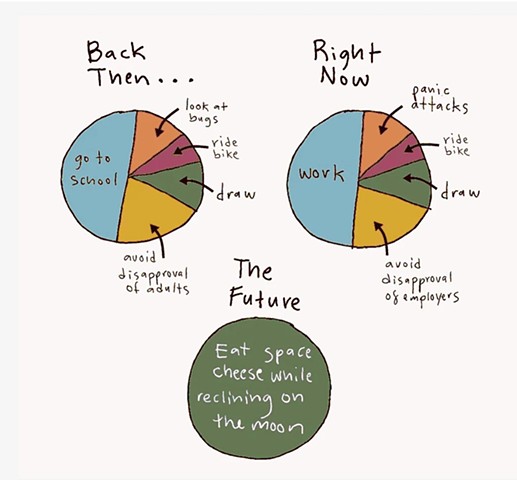 Back
Then...
look at
bugs
ride
bike
draw
go to
school
avoid
disapproval
of adults
Right
Now
panic
attacks
ride
bike
draw
work
avoid
disapproval
of employers
The
Future
Eat space
cheese while
reclining on
the moon